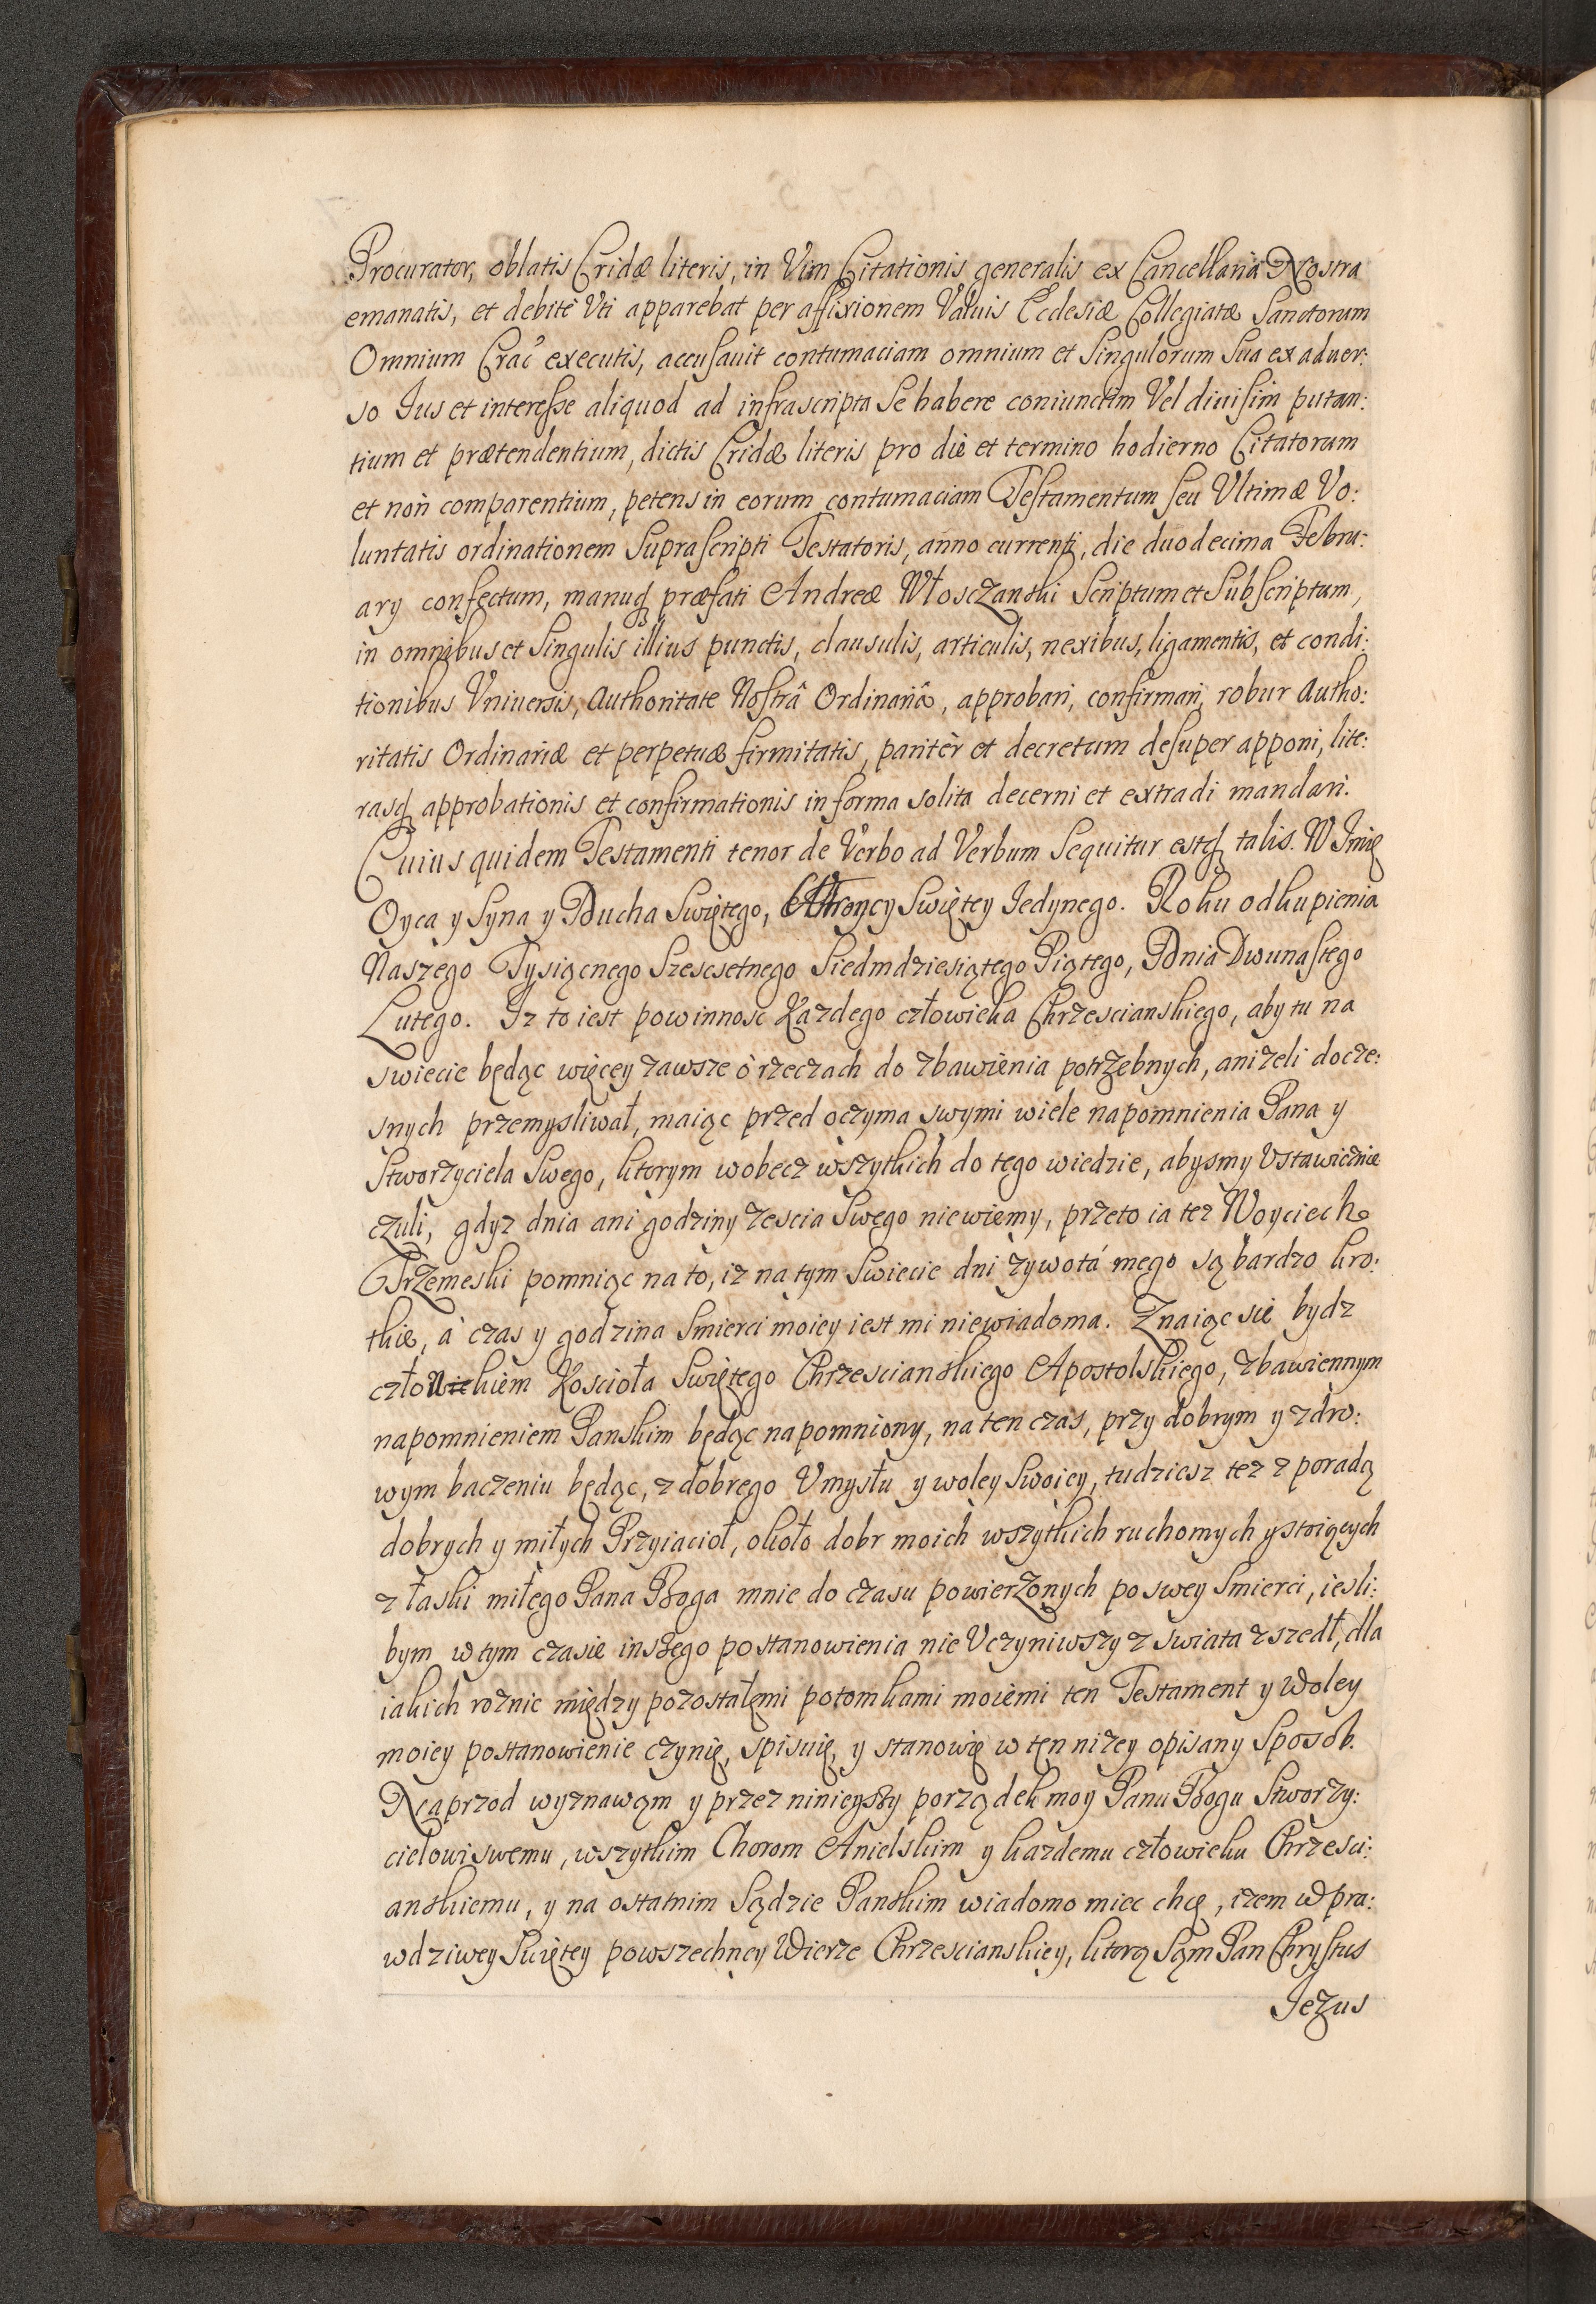 Procurator, oblatis Cridæ literis, in Vim Citationis generalis ex Cancellaria Nostra
emanatis, et debitè Vti apparebat per affixionem Valuis Ecclesiæ Collegiatæ Sanctorum
Omnium Crac̃ executis, accusauit contumaciam omnium et Singulorum Sua ex aduer:
so Jus et interesse aliquod ad infrascripta Se habere coniunctim Vel diuisim putan:
tium et prætendentium, dictis Cridæ literis pro die et termino hodierno Citatorum
et non comparentium, petens in eorum contumaciam Testamentum seu Vltimæ Vo:
luntatis ordinationem Suprascripti Testatoris, anno currenti, die duodecima Febru:
ary confectum, manuq præfati Andreæ Włosczanski Scriptum et Subscriptum,
in omnibus et Singulis illius punctis, clausulis, articulis, nexibus, ligamentis, et condi:
tionibus Vniuersis, Authoritate Nostrâ Ordinariâ, approbari, confirmari, robur Autho:
ritatis Ordinariæ et perpetuæ firmitatis, paritèr et decretum desuper apponi, lite:
rasq approbationis et confirmationis in forma solita decerni et extradi mandari.
Cuius quidem Testamenti tenor de Verbo ad Verbum Sequitur estq talis. W Imię
Oyca y Syna y Ducha Swiętego, Troycy Swiętey Jedynego. Roku odkupienia
Naszego Tysiącnego Szescsetnego Siedmdziesiątego Piątego, Dnia Dwunastego
Lutego. Iz to iest powinnosc Kazdego człowieka Chrzescianskiego, aby tu na
swiecie będąc więcey zawsze o rzeczach do zbawienia potrzebnych, anizeli docze:
snych przemysliwał, maiąc przed oczyma swymi wiele napomnienia Pana y
Stworzyciela Swego, ktorym wobecz wszytkich do tego wiedzie, abysmy Vstawicznie
czuli, gdyz dnia ani godziny zescia Swego niewiemy, przeto ia tez Woyciech
Trzemeski pomniąc na to, iz na tym Swiecie dni zywota mego są bardzo kro:
tkie, á czas y godzina Smierci moiey iest mi niewiadoma. Znaiąc sie bydz
człowiekiem Koscioła Swiętego Chrzescianskiego Apostolskiego, zbawiennym
napomnieniem Panskim będąc napomniony, na ten czas, przy dobrym y zdro:
wym baczeniu będąc, z dobrego Vmysłu y woley Swoiey, tudziesz tez z poradą
dobrych y miłych Przyiacioł, około dobr moich wszytkich ruchomych y stoiących
z łaski miłego Pana Boga mnie do czasu powierzonych po swey Smierci, iesli:
bym w tym czasie inszego postanowienia nie Vczyniwszy z swiata zszedł, dla
iakich roznic między pozostałemi potomkami moiemi ten Testament y Woley
moiey postanowienie czynię, spisuię, y stanowię w ten nizey opisany Sposob.
Naprzod wyznawam y przez ninieyszy porządek moy Panu Bogu Stworzy:
cielowi swemu, wszytkim Chorom Anielskim y kazdemu człowieku Chrzesci:
anskiemu, y na ostatnim Sądzie Panskim wiadomo miec chcę, izem w pra:
wdziwey Swiętey powszechney Wierze Chrzescianskiey, ktorą Sąm Pan Chrystus
Jezus